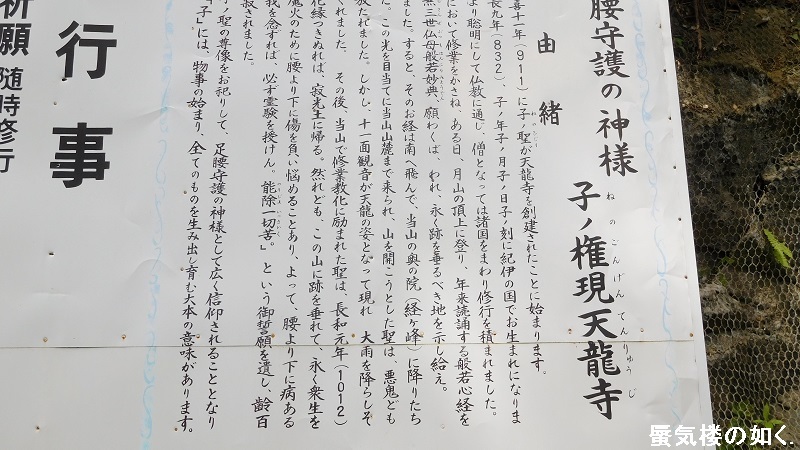 腰守護の神様
子ノ権現天龍寺
ねのごんげんてんりゅうじ
由緒
喜十一年(911)に子ノ聖が天龍寺を創建されたことに始まります。
長九年(832)、子ノ年子ノ月子ノ日子ノ刻に紀伊の国でお生まれになりま
より聡明にして仏教に通じ、僧となっては諸国をまわり修行を積まれました。
において修業をかさね、ある日、月山の頂上に登り、年来読誦する般若心経を
三世仏母般若妙典、願わくば、われ、永く跡を垂るべき地を示し給え。
ました。すると、そのお経は南へ飛んで、当山の奥の院(経ヶ峰)に降りたち
た。この光を目当てに当山山麓まで来られ、山を開こうとした聖は、悪鬼ども
放たれました。しかし、十一面観音が天龍の姿となって現れ 大雨を降らしそ
くれました。 その後、当山で修業教化に励まれた聖は、長和元年(1012)
化縁つきぬれば、寂光土に帰る。然れども、この山に跡を垂れて、永く衆生を
魔火のために腰より下に傷を負い悩めることあり、よって、腰より下に病ある
我を念ずれば、必ず霊験を授けん。能除一切苦。」という御誓願を遺し、齢百
寂されました。
ノ聖の尊像をお祀りして、足腰守護の神様として広く信仰されることとなり
子」には、物事の始まり、全てのものを生み出し育む大本の意味があります。
行事
祈願 随時修行
蜃気楼の如く.